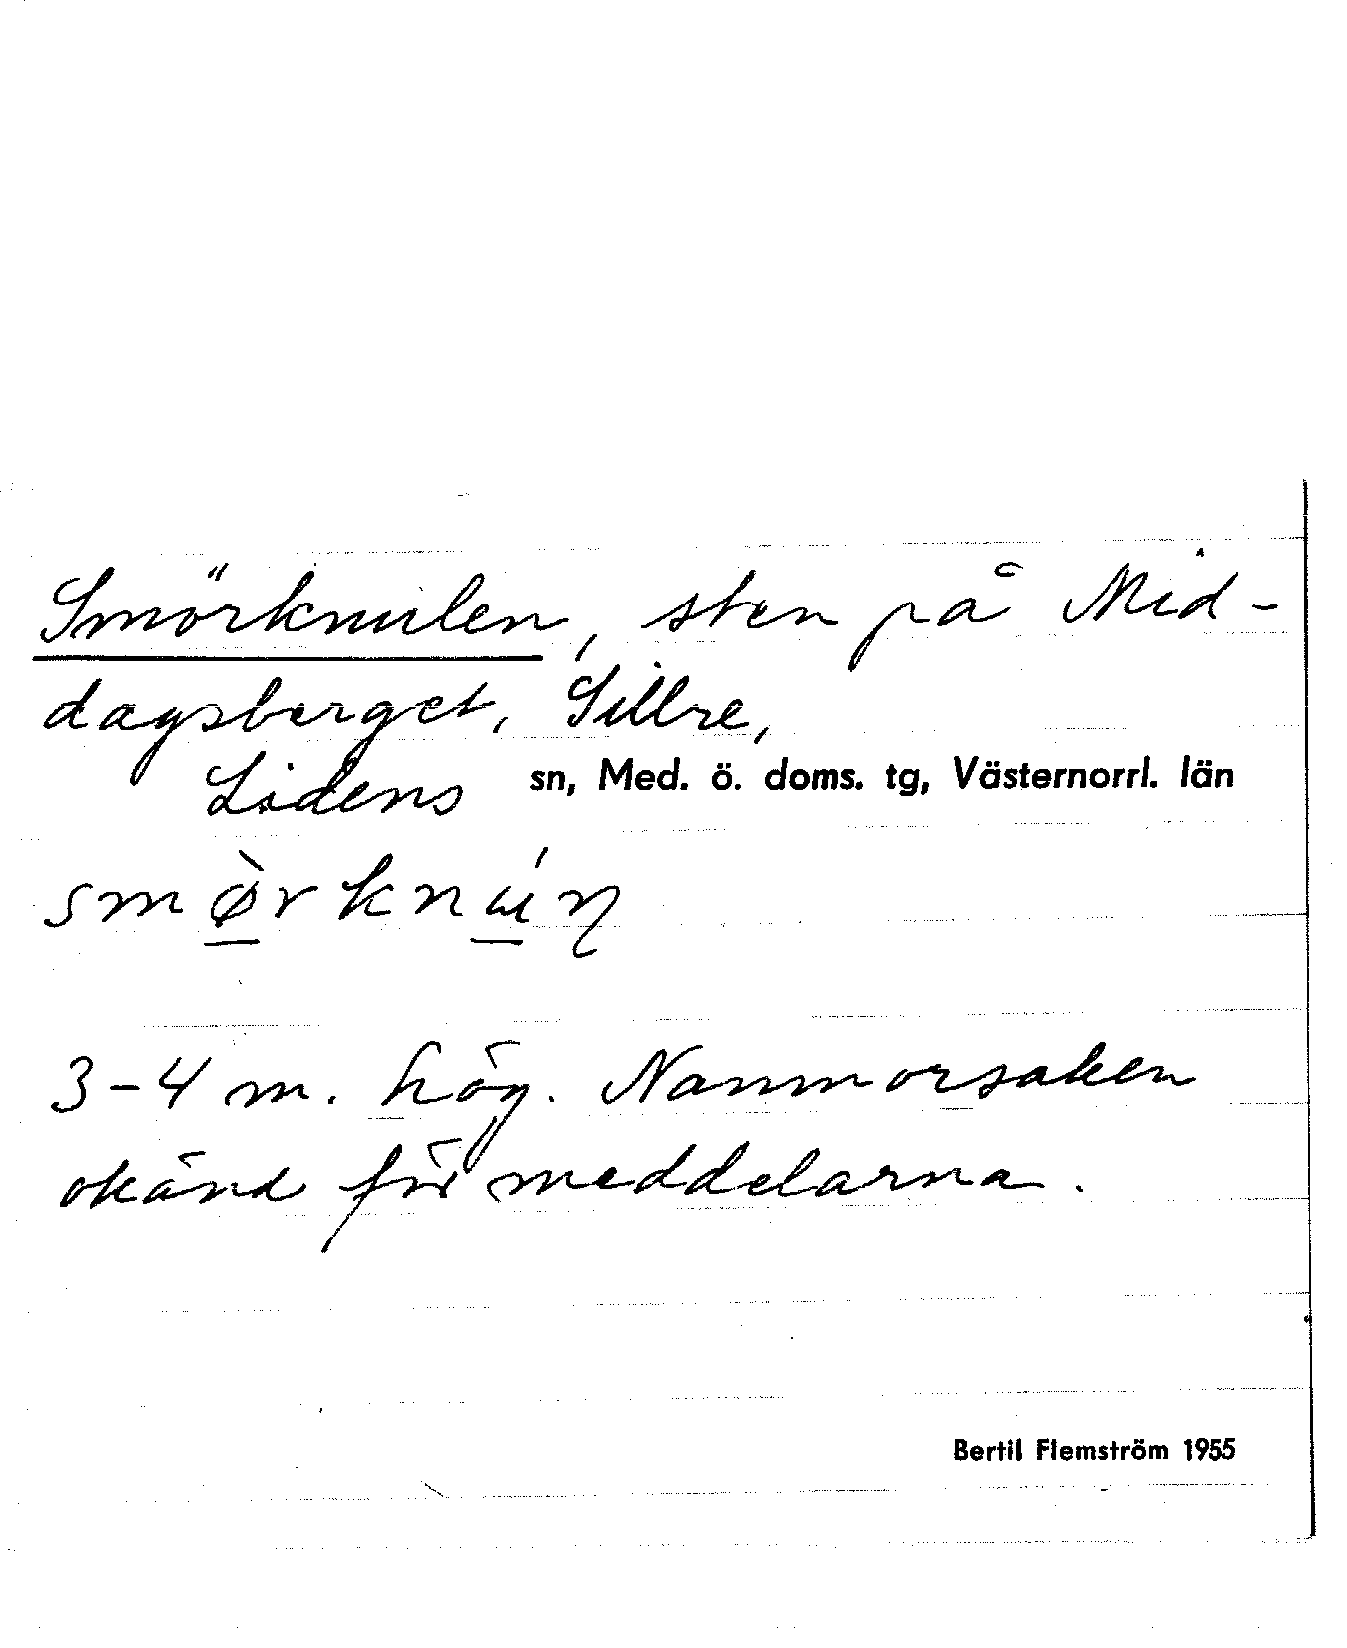 Smörknulen, sten på Mid-
dagsberget, Sillre,
Lidens sn, Med. ö. doms. tg, Västernorrl. län
smø̀rknúŋ
3-4 m. hög. Namnorsaken
okänd för meddelarna.
Bertil Flemström 1955